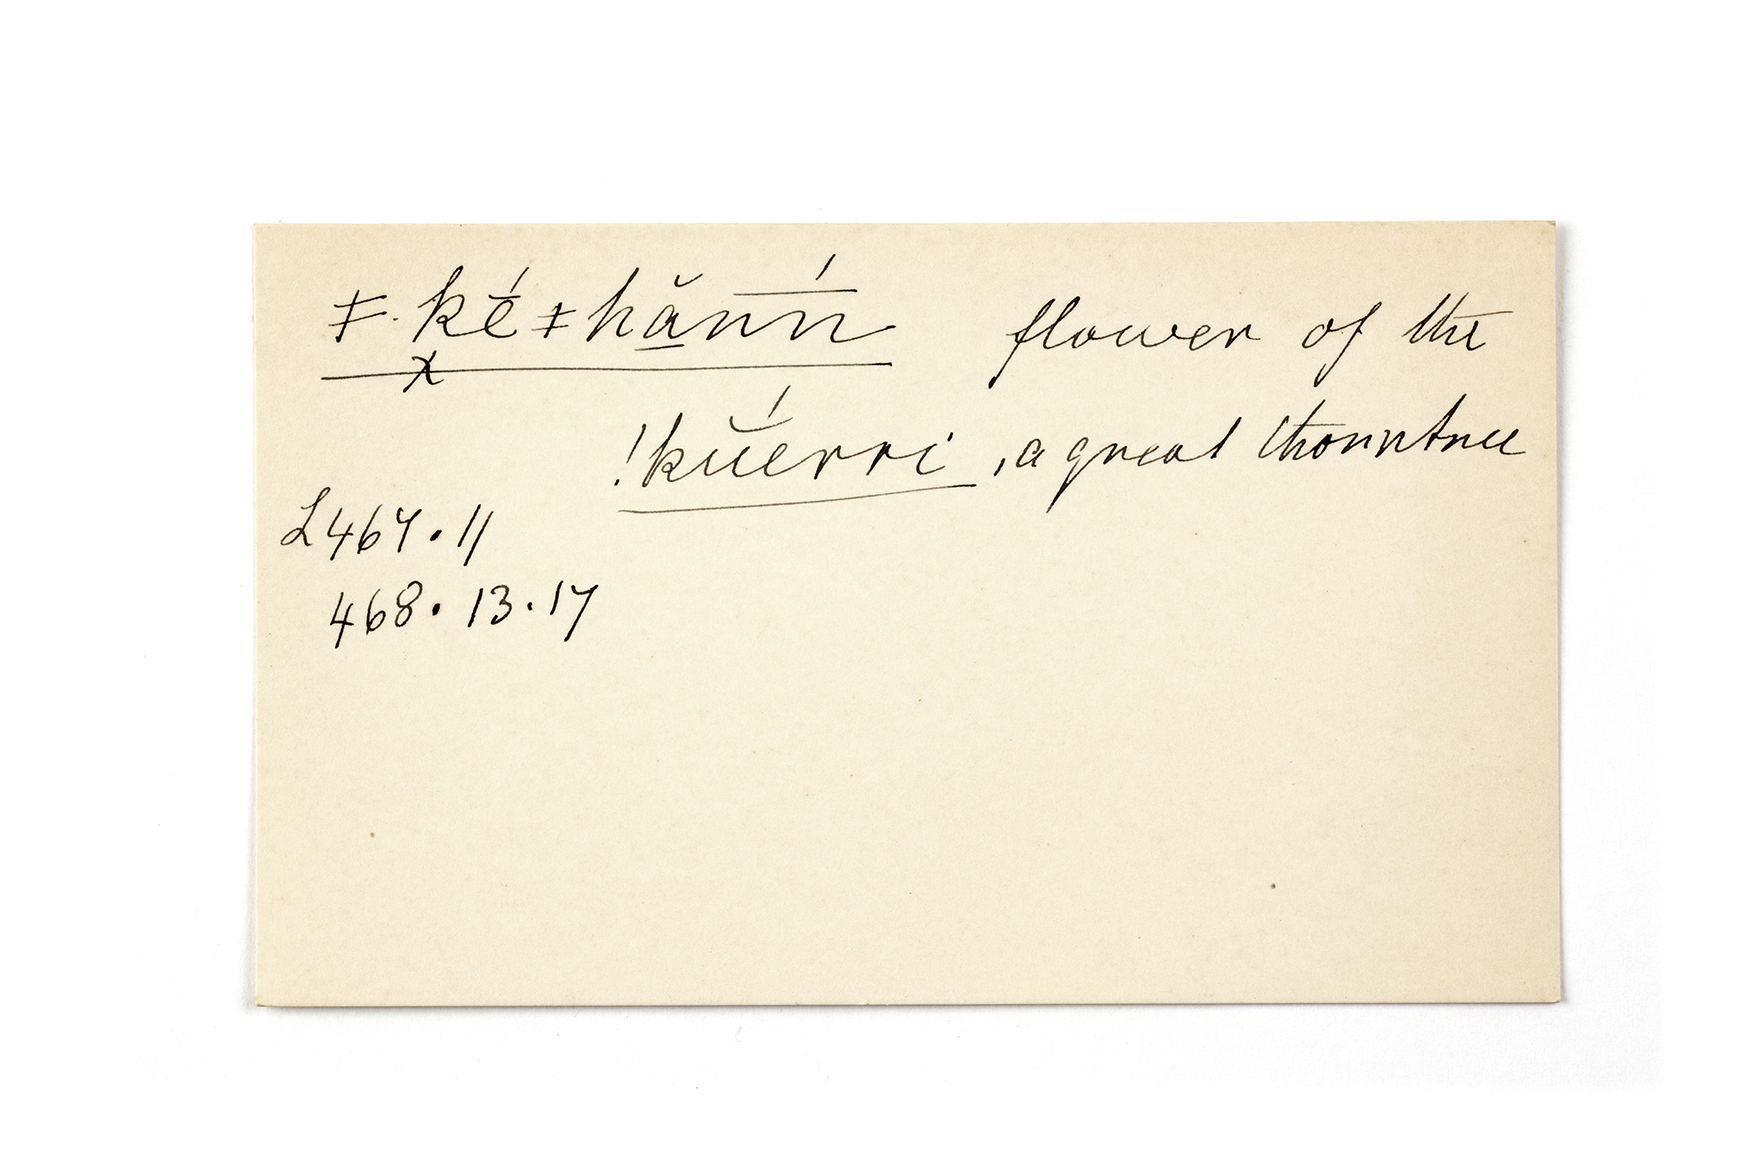 ǂ·k̆é ǂhă̱nń flower of the
x
!kŭérri, a great thorntree
L467·11
468·13·17